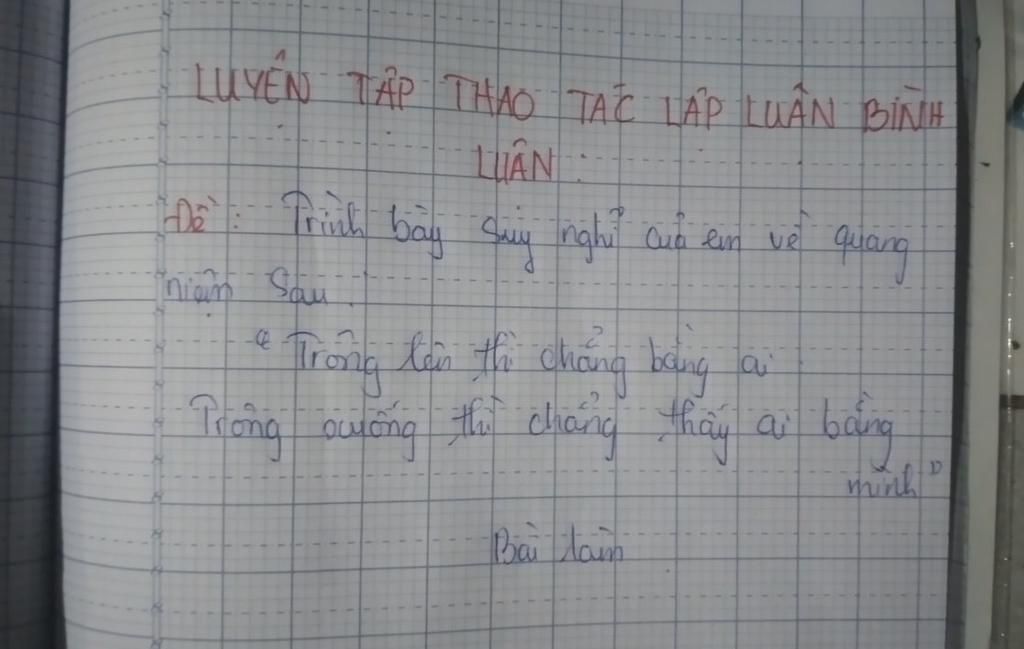 LUYỆN TẬP THAO TÁC LẬP LUẬN BÌNH
LUẬN :
Đề : Trình bày suy nghĩ của em về quang
niệm sau.
“ Trông lên thì chẳng bằng ai
Trông xuống thì chẳng thấy ai bằng
mình”
Bài làm